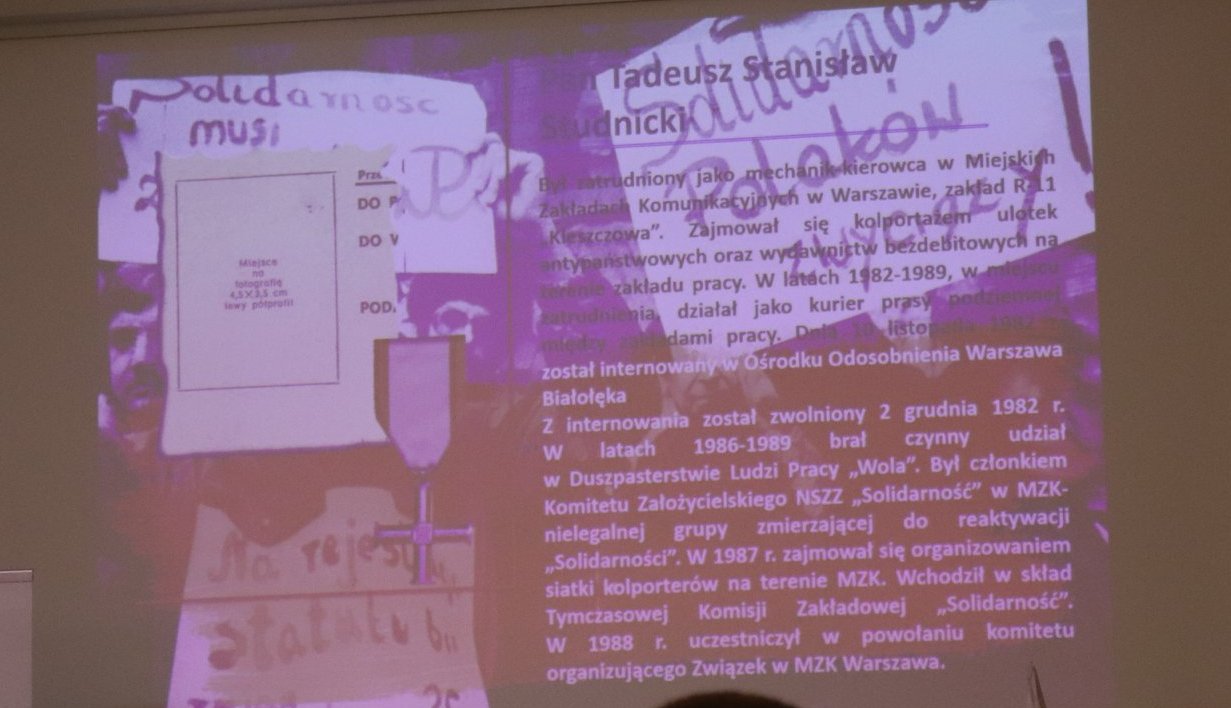 Solidarnosc
musi
Miejsce
na
fotografię
4,5X3,5 cm
lewy półprofil
DO
DO
POD.
Na
statutu
Solidarność
Polaków
zwycięży!
Pan Tadeusz Stanisław
Studnicki
Był zatrudniony jako mechanik-kierowca w Miejskich
Zakładach Komunikacyjnych w Warszawie, zakład R-11
„Kleszczowa”. Zajmował się kolportażem ulotek
antypaństwowych oraz wydawnictw bezdebitowych na
terenie zakładu pracy. W latach 1982-1989, w miejscu
zatrudnienia, działał jako kurier prasy podziemnej
między zakładami pracy. Dnia 10 listopada 1982 r.
został internowany w Ośrodku Odosobnienia Warszawa
Białołęka
Z internowania został zwolniony 2 grudnia 1982 r.
W latach 1986-1989 brał czynny udział
w Duszpasterstwie Ludzi Pracy „Wola”. Był członkiem
Komitetu Założycielskiego NSZZ „Solidarność” w MZK-
nielegalnej grupy zmierzającej do reaktywacji
„Solidarności”. W 1987 r. zajmował się organizowaniem
siatki kolporterów na terenie MZK. Wchodził w skład
Tymczasowej Komisji Zakładowej „Solidarność”.
W 1988 r. uczestniczył w powołaniu komitetu
organizującego Związek w MZK Warszawa.